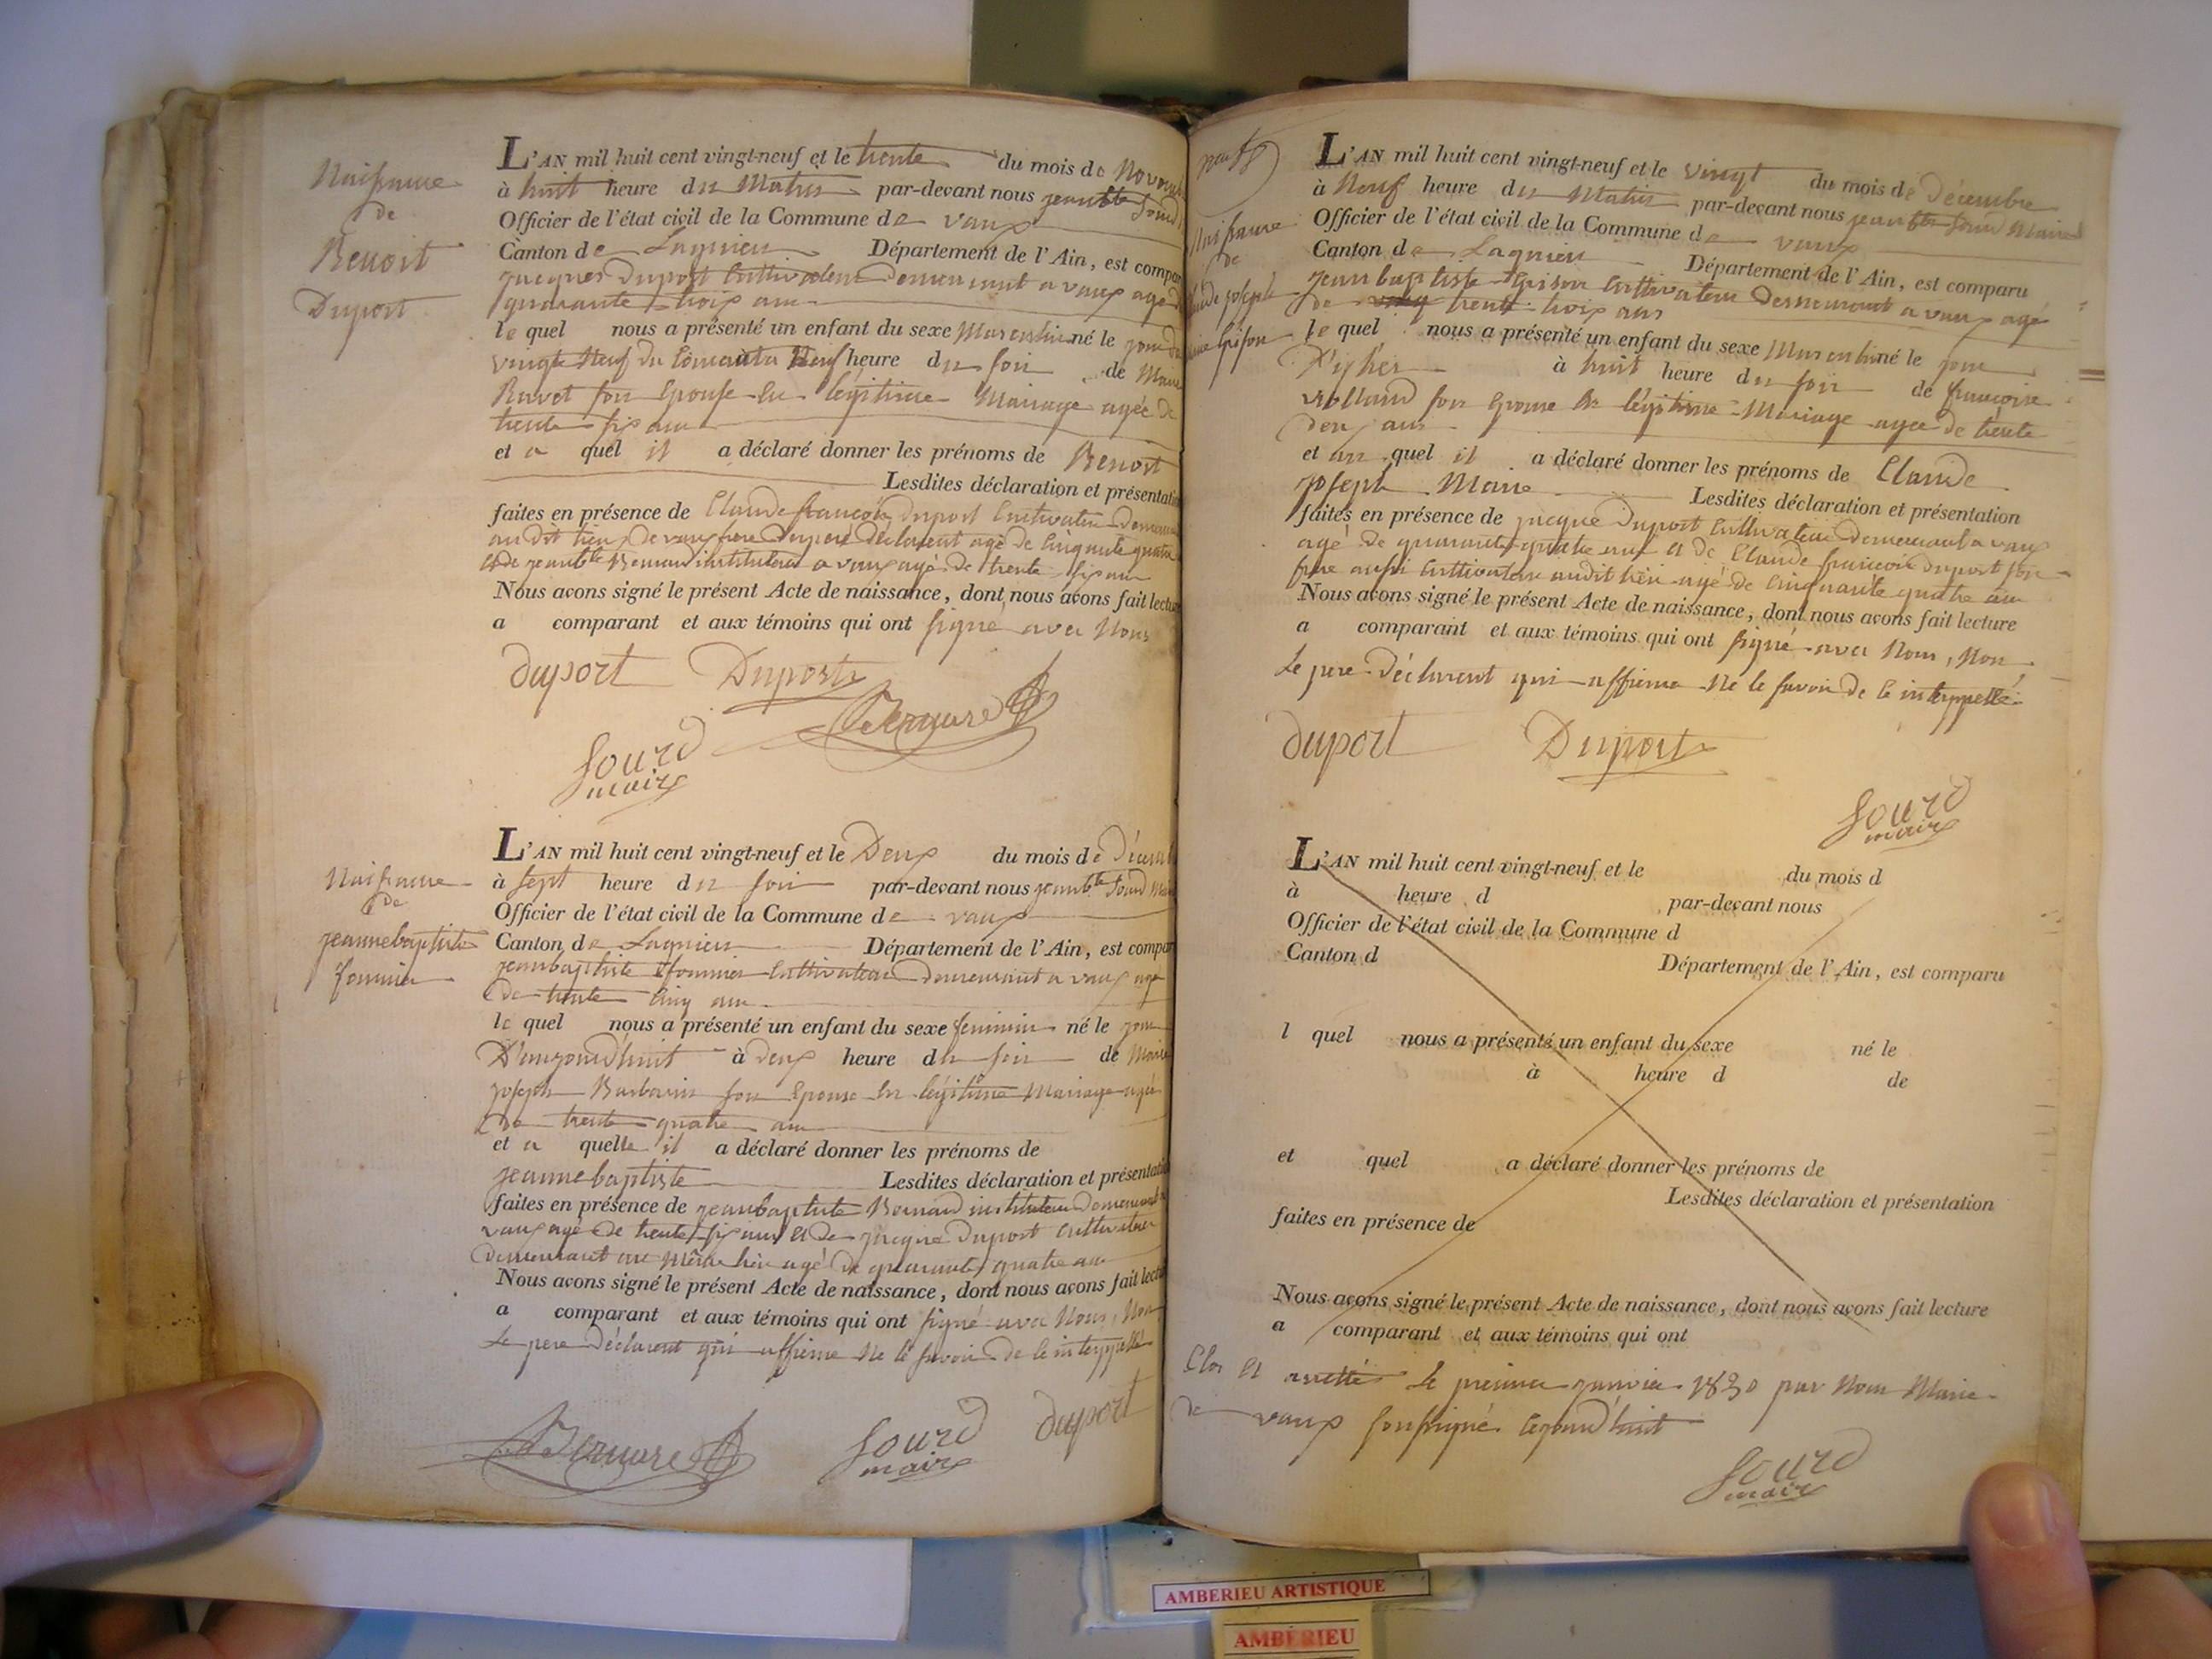 Naissance
de
Benoit
Duport
L'AN mil huit cent vingt-neuf et le trente du mois de Novem
à huit heure du Matin par-devant nous jean bte Sourd
Officier de l'état civil de la Commune de vaux
Canton de Lagnieu Département de l'Ain, est compar
jacques Duport Cultivateur demeurant a vaux agé
quarante trois ans
le quel nous a présenté un enfant du sexe Masculin né le jour
vingt Neuf du Courant à Neuf heure du soir de Marie
Ravet son Epouse en légitime Mariage agée de
trente six ans
et a quel il a déclaré donner les prénoms de Benoit
Lesdites déclaration et présentation
faites en présence de Claude françois Duport Cultivateur demeurant
au dit lieu de vaux frere du pere déclarent agé de Cinquante quatre
et de jean bte Bernard instituteur a vaux agé de trente six ans
Nous avons signé le présent Acte de naissance, dont nous avons fait lecture
a comparant et aux témoins qui ont signé avec Nous
duport Duport
Bernard
Sourd
maire
Naissance
de
jeanne baptiste
fournier
L'AN mil huit cent vingt-neuf et le Deux du mois de Décem
à sept heure du soir par-devant nous jean bte Sourd Mai
Officier de l'état civil de la Commune de vaux
Canton de Lagnieu Département de l'Ain, est compar
jean baptiste fournier Cultivateur demeurant a vaux age
de trente Cinq ans
le quel nous a présenté un enfant du sexe feminin né le jour
D'aujourd'huit à deux heure du soir de Marie
joseph Barbarin son Epouse en légitime Mariage agée
de trente quatre ans
et a quelle il a déclaré donner les prénoms de
jeanne baptiste Lesdites déclaration et présentation
faites en présence de jean baptiste Bernard instituteur demeurant a
vaux agé de trente six ans et de jacque Duport Cultivateur
demeurant au Même lieu agé de quarante quatre ans
Nous avons signé le présent Acte de naissance, dont nous avons fait lectu
a comparant et aux témoins qui ont signé avec Nous, Non
Le pere Déclarent qui affirme Ne le savoir de ce interpellé
Bernard Sourd duport
maire
neuf
Naissance
de
Claude joseph
marie Grison
L'AN mil huit cent vingt-neuf et le vingt du mois de Décembre
à Neuf heure du Matin par-devant nous jean bte Sourd Maire
Officier de l'état civil de la Commune de vaux
Canton de Lagnieu Département de l'Ain, est comparu
jean baptiste Grison Cultivateur demeurant a vaux agé
de trente trois ans
le quel nous a présenté un enfant du sexe Masculin né le jour
D'yher à huit heure du soir de françoise
Rolland son Epouse en légitime Mariage agée de trente
deux ans
et au quel il a déclaré donner les prénoms de Claude
joseph Marie Lesdites déclaration et présentation
faites en présence de jacque Duport Cultivateur demeurant a vaux
agé de quarante quatre ans et de Claude françois duport son
frere aussi Cultivateur audit lieu agé de Cinquante quatre ans
Nous avons signé le présent Acte de naissance, dont nous avons fait lecture
a comparant et aux témoins qui ont signé avec Nous, Non
Le pere Déclarent qui affirme Ne le savoir de ce interpellé
duport Duport
Sourd
maire
L'AN mil huit cent vingt-neuf et le du mois d
à heure d par-devant nous
Officier de l'état civil de la Commune d
Canton d Département de l'Ain, est comparu
l quel nous a présenté un enfant du sexe né le
à heure d de
et quel a déclaré donner les prénoms de
Lesdites déclaration et présentation
faites en présence de
Nous avons signé le présent Acte de naissance, dont nous avons fait lecture
a comparant et aux témoins qui ont
Clos et arretté Le premier janvier 1830 par Nous Maire
de vaux soussigné Cejourd'huit
Sourd
maire
AMBERIEU ARTISTIQUE
AMBÉRIEU